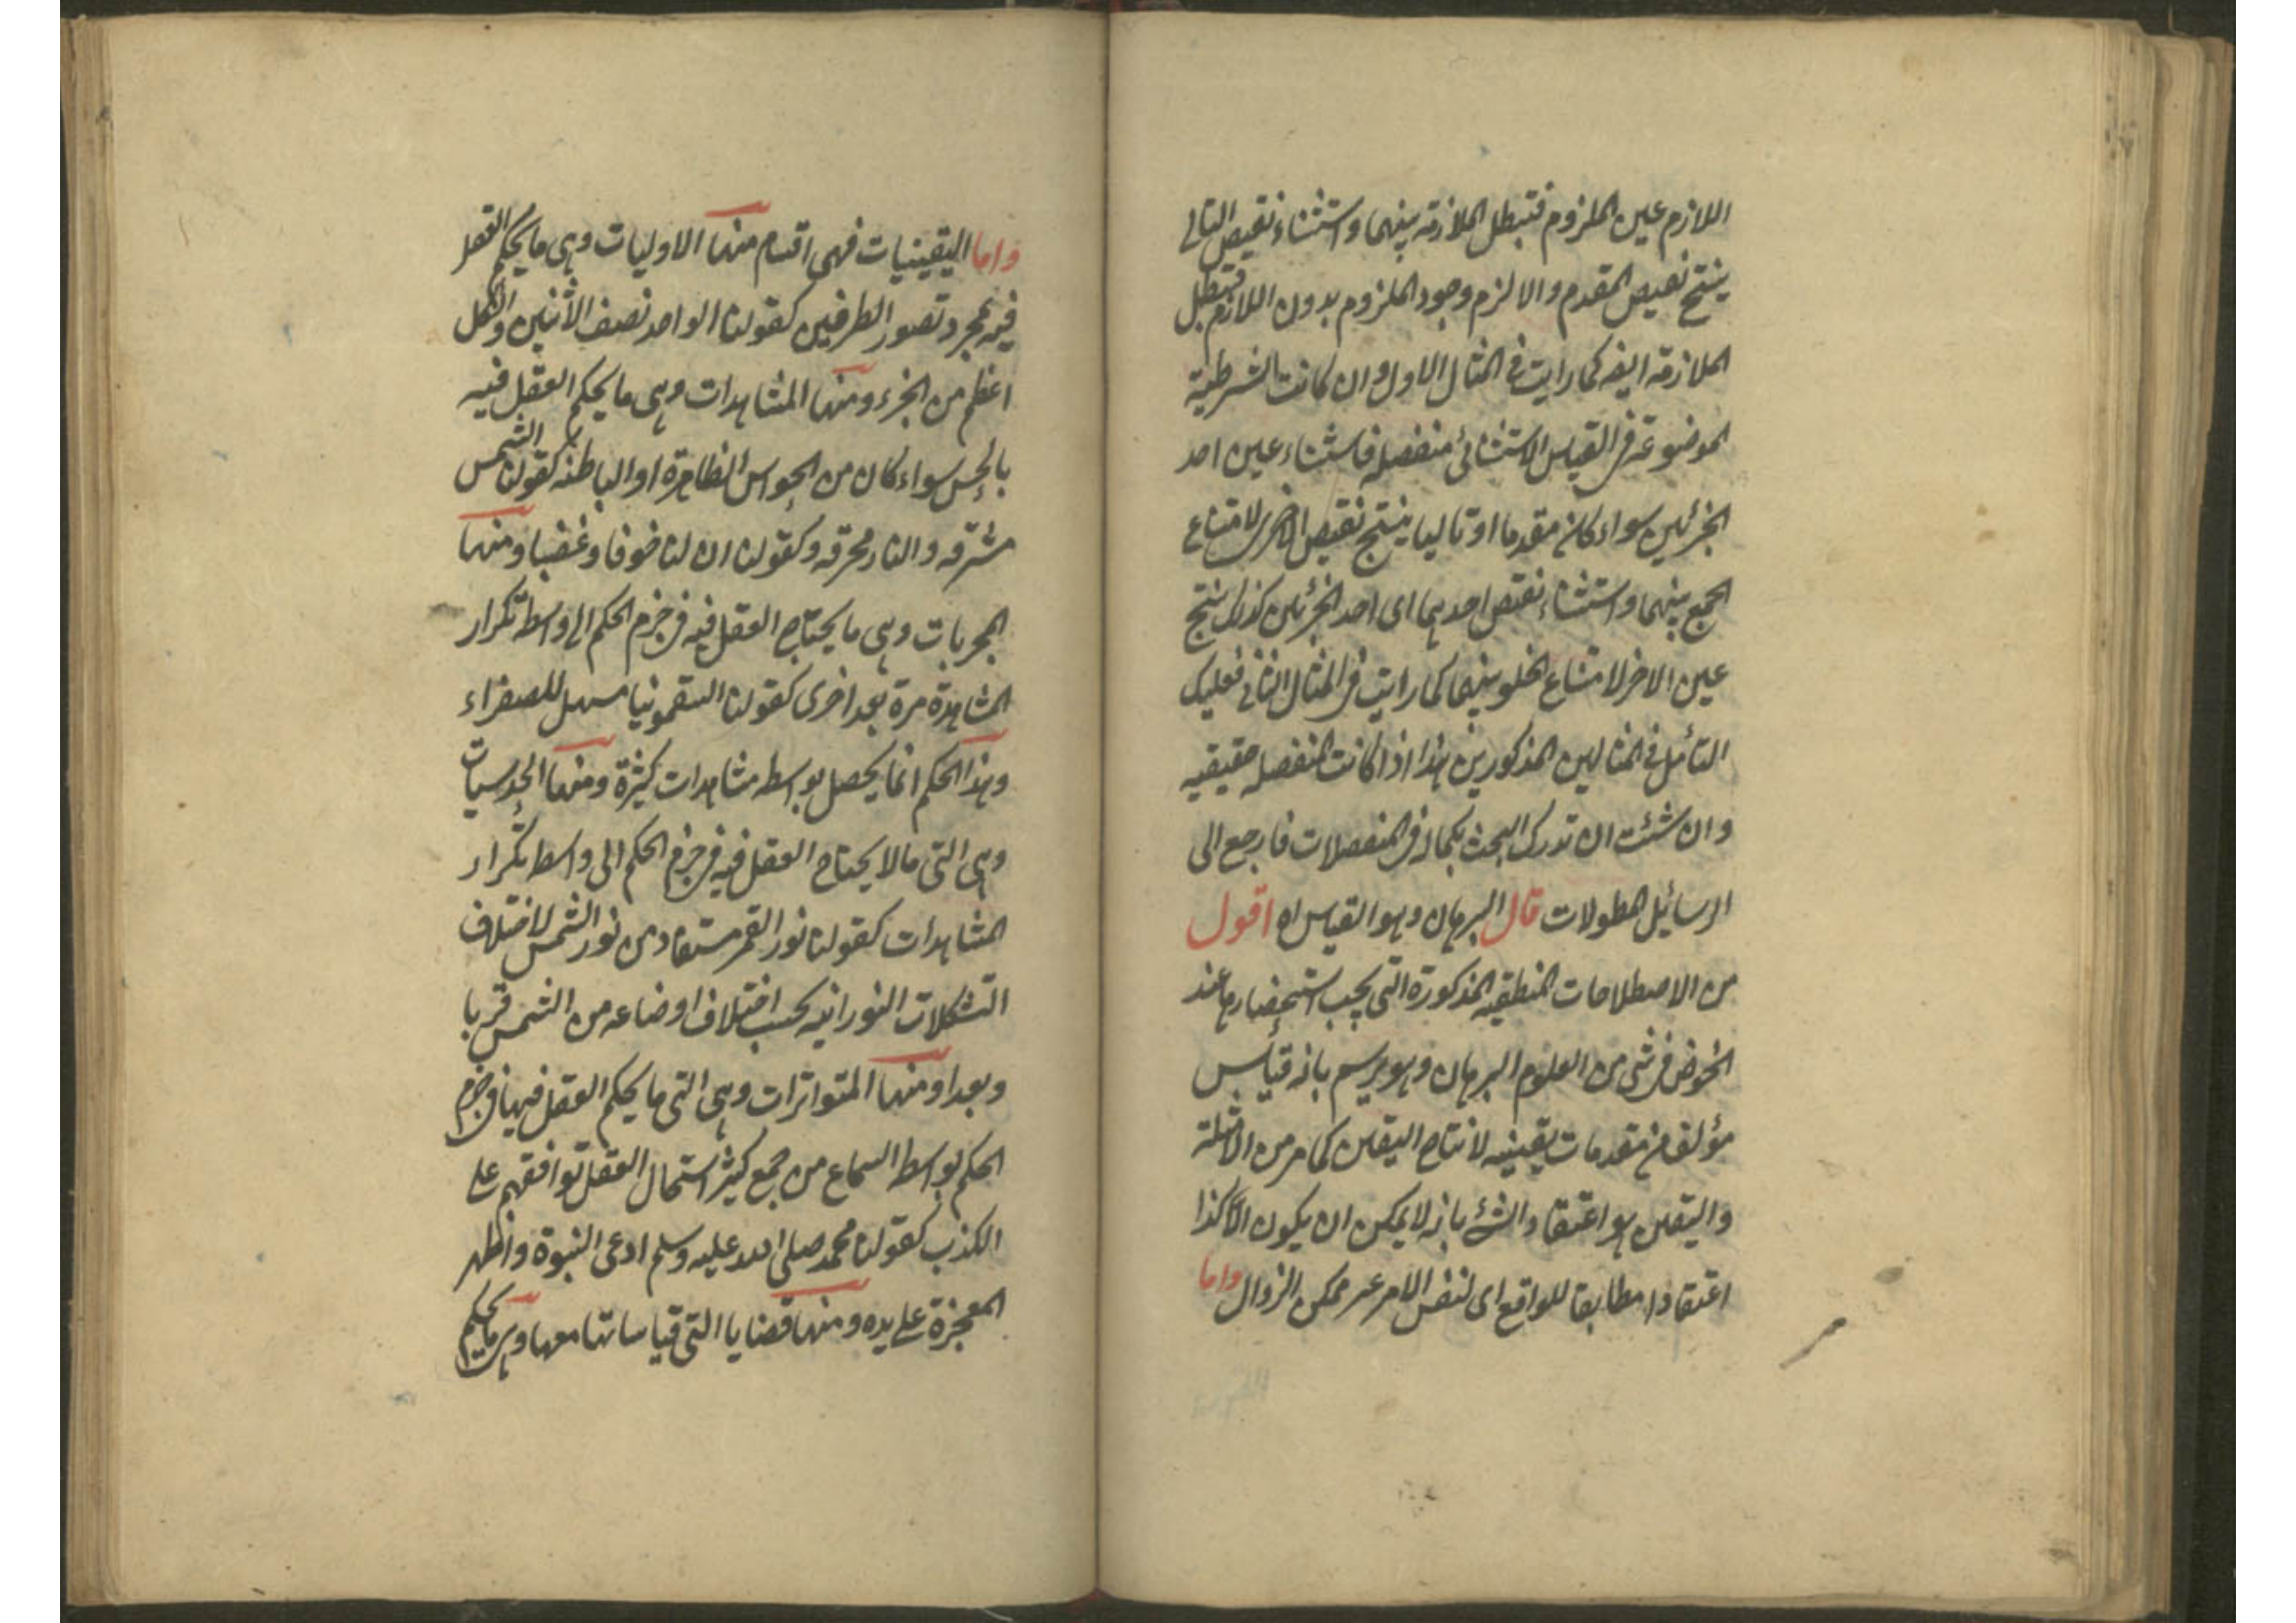 اللازم عين الملزوم فتبطل الملازمة بينهما واستثناء نقيض التالى
ينتج نقيض المقدم والا لزم وجود الملزوم بدون اللازم فتبطل
الملازمة ايضه كما رايت فى المثال الاول وان كانت الشرطية
الموضوعة فى القياس الاستثنائى منفصله فاستثناء عين احد
الجزئين سواء كان مقدما او تاليا ينتج نقيض الاخرى لامتناع
الجمع بينهما واستثناء نقيض احدهما اى احد الجزئين كذلك ينتج
عين الاخر لامتناع الخلو بينهما كما رايت فى المثال الثانى فعليك
التأمل فى المثالين المذكورين هذا اذا كانت المنفصله حقيقيه
وان شئت ان تدرك البحث بكماله فى المنفصلات فارجع الى
الرسائيل المطولات قال البرهان وهو القياس اه اقول
من الاصطلاحات المنطقيه المذكورة التى يجب استحضارها عند
الخوض فى شئ من العلوم البرهان وهو يرسم بانه قياس
مؤلف من مقدمات يقينيه لانتاج اليقين كما مر من الامثلة
واليقين هو اعتقاد الشئ بانه لا يمكن ان يكون الا كذا
اعتقادا مطابقا للواقع اى لنفس الامر غير ممكن الزوال واما
واما اليقينيات فهى اقسام منها الاوليات وهى ما يحكم العقل
فيه بمجرد تصور الطرفين كقولنا الواحد نصف الاثنين والكل
اعظم من الجزء ومنها المشاهدات وهى ما يحكم العقل فيه
بالحس سواء كان من الحواس الظاهرة او الباطنه كقولنا الشمس
مشرقه والنار محرقه وكقولنا ان لنا خوفا وغضبا ومنها
المجربات وهى ما يحتاج العقل فيه فى جزم الحكم الى واسطة تكرار
المشاهدة مرة بعد اخرى كقولنا السقمونيا مسهل للصفراء
وهذا الحكم انما يحصل بواسطه مشاهدات كثيرة ومنها الحدسيات
وهى التى ما لا يحتاج العقل فيه فى جزم الحكم الى واسطه تكرار
المشاهدات كقولنا نور القمر مستفاد من نور الشمس لاختلاف
التشكلات النورانيه بحسب اختلاف اوضاعه من الشمس قربا
وبعدا ومنها المتواترات وهى التى ما يحكم العقل فيها فى جزم
الحكم بواسطه السماع من جمع كثير استحال العقل توافقهم على
الكذب كقولنا محمد صلى الله عليه وسلم ادعى النبوة واظهر
المعجزة على يده ومنها قضايا التى قياساتها معها وهى ما يحكم